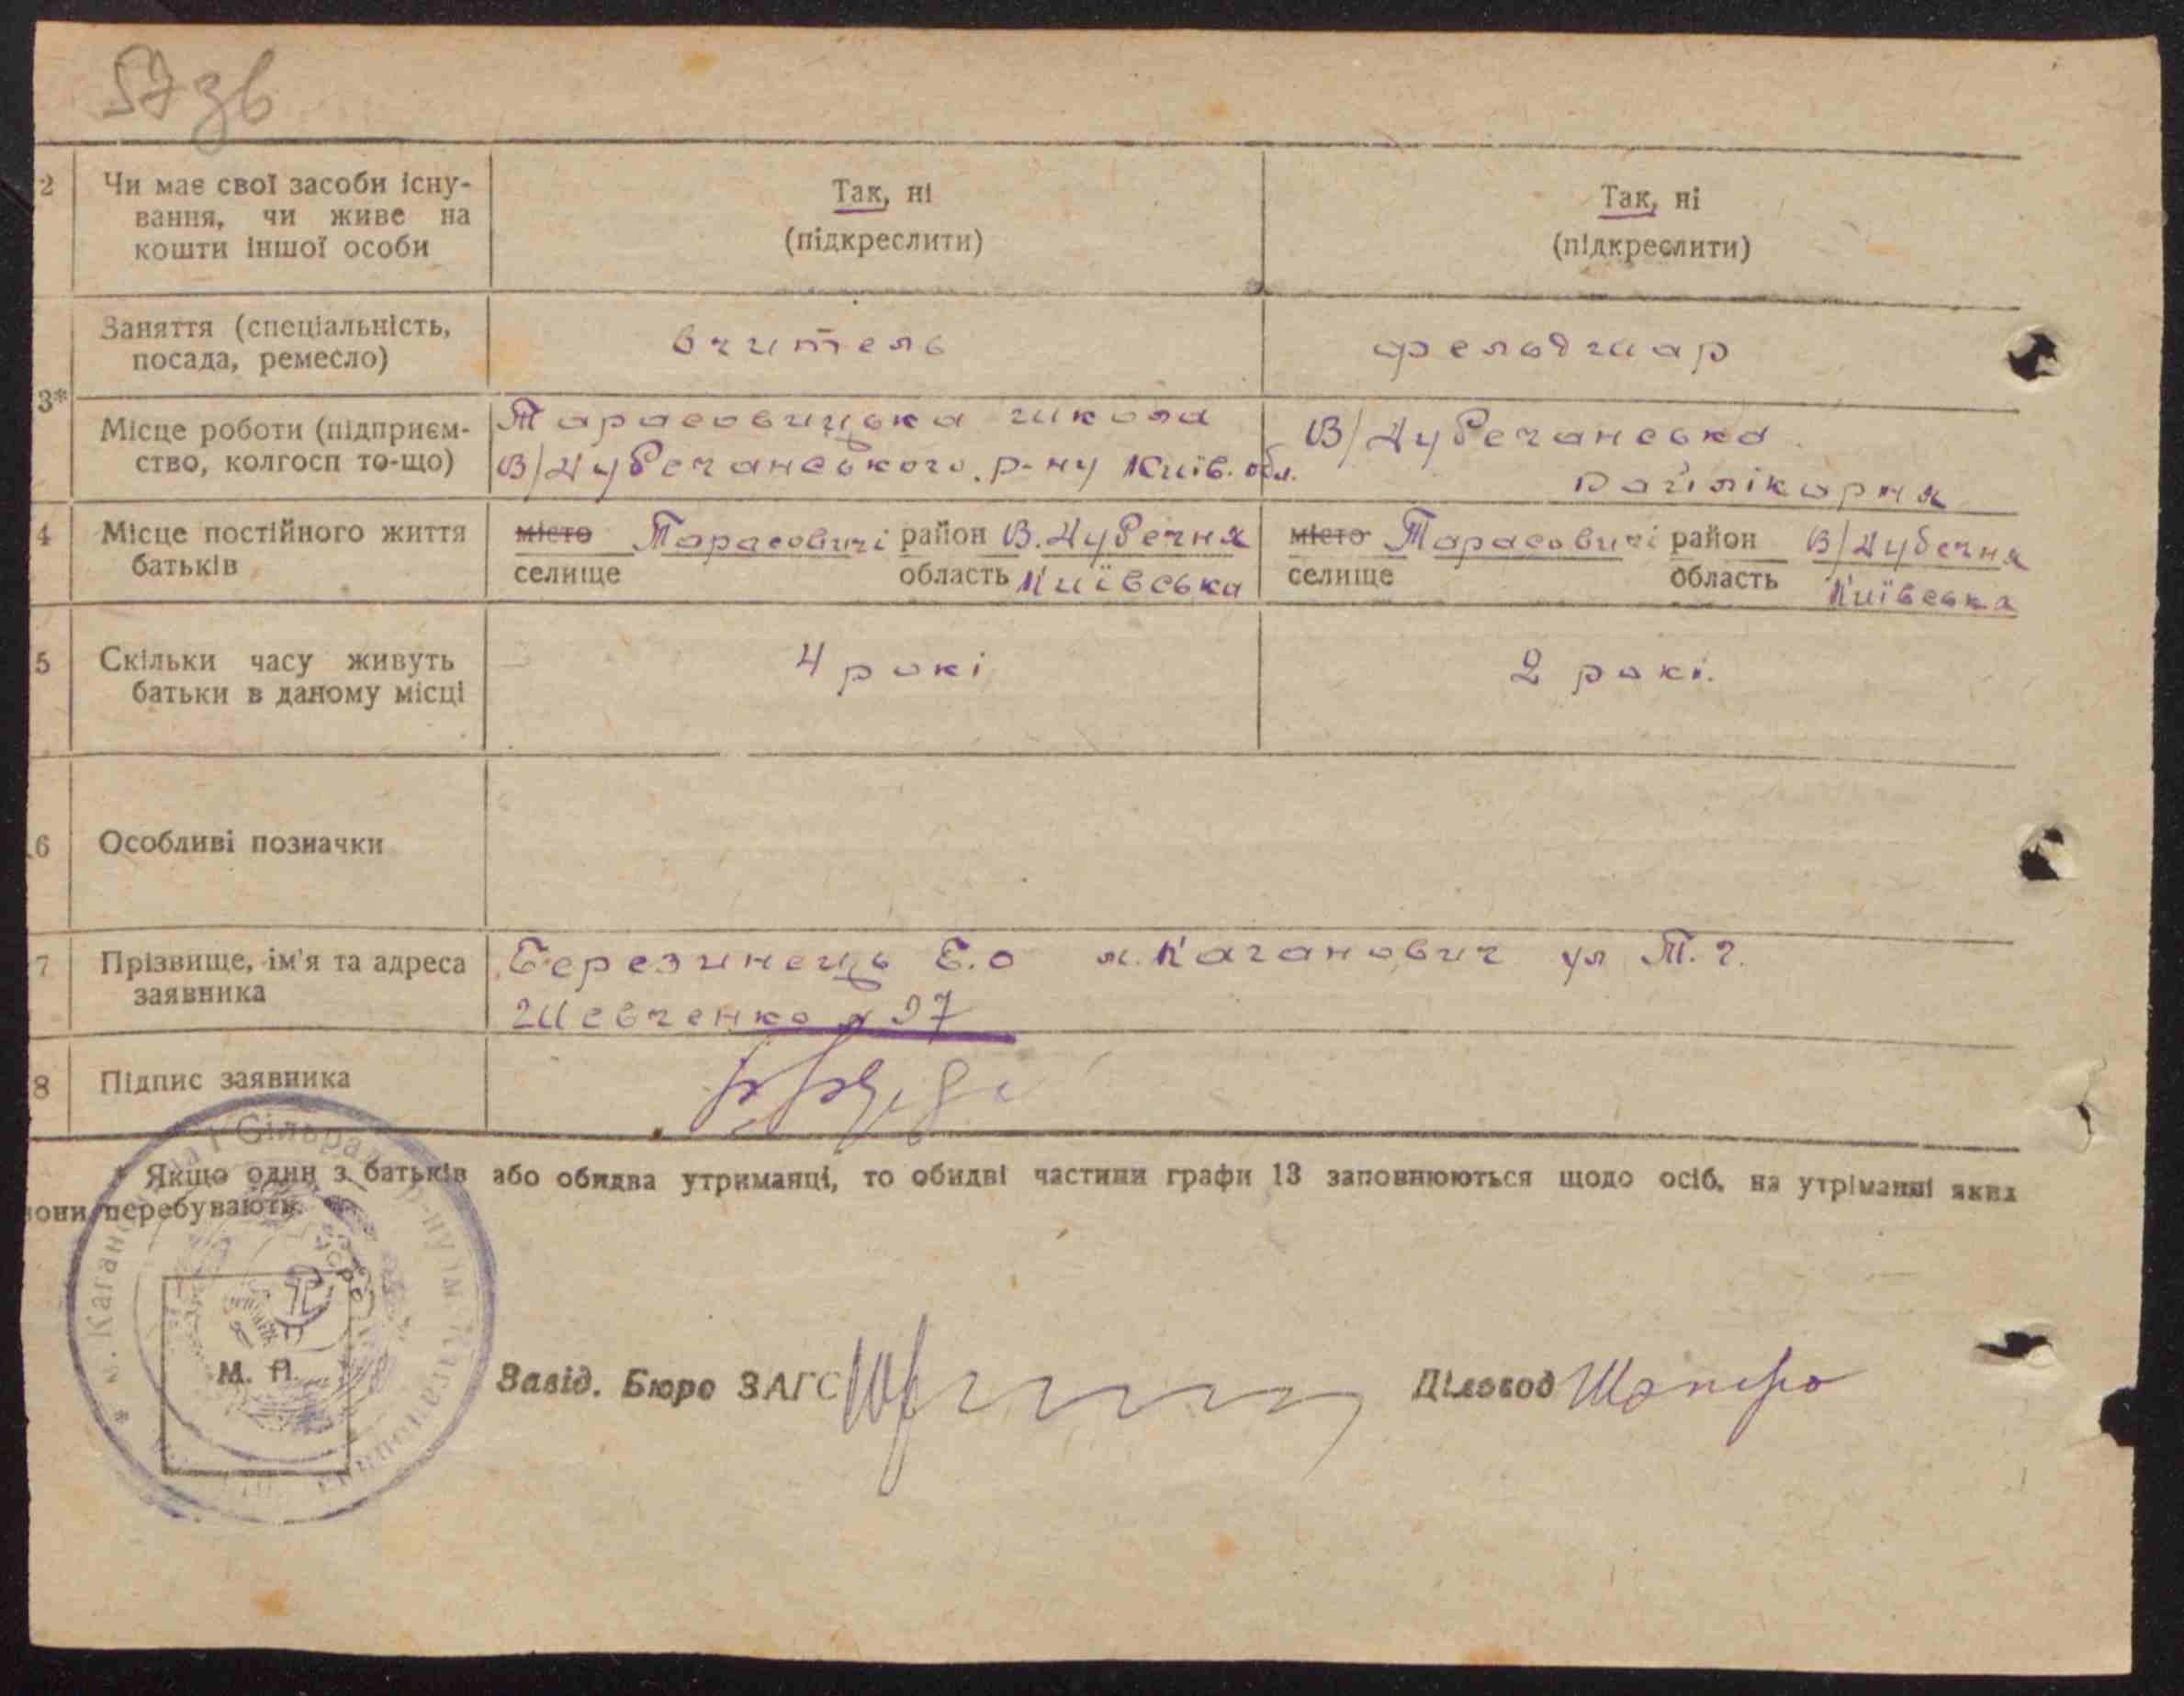 57 зв
2 Чи має свої засоби існу-
вання, чи живе на
кошти іншої особи
Так, ні
(підкреслити)
Так, ні
(підкреслити)
Заняття (спеціальність,
посада, ремесло)
вчитель
фельдшар
3*
Місце роботи (підприєм-
ство, колгосп то-що)
Тарасовицька школа
В/Дубечанського р-ну Київ. обл.
В/Дубечанська
райлікарня
4 Місце постійного життя
батьків
місто Тарасовичі район В. Дубечня
селище область Київська
місто Тарасовичі район В/Дубечня
селище область Київська
5 Скільки часу живуть
батьки в даному місці
4 рокі
2 рокі.
6 Особливі позначки
7 Прізвище, ім'я та адреса
заявника
Березинець Є.О м. Каганович ул Т. г.
Шевченко № 37
8 Підпис заявника
* Якщо один з батьків або обидва утриманці, то обидві частини графи 13 заповнюються щодо осіб, на утріманні яких
вони перебувають.
м. Каганов Сільрада р-ну ім. Кагановича
М. П.
Завід. Бюро ЗАГС
Діловод Шапіро